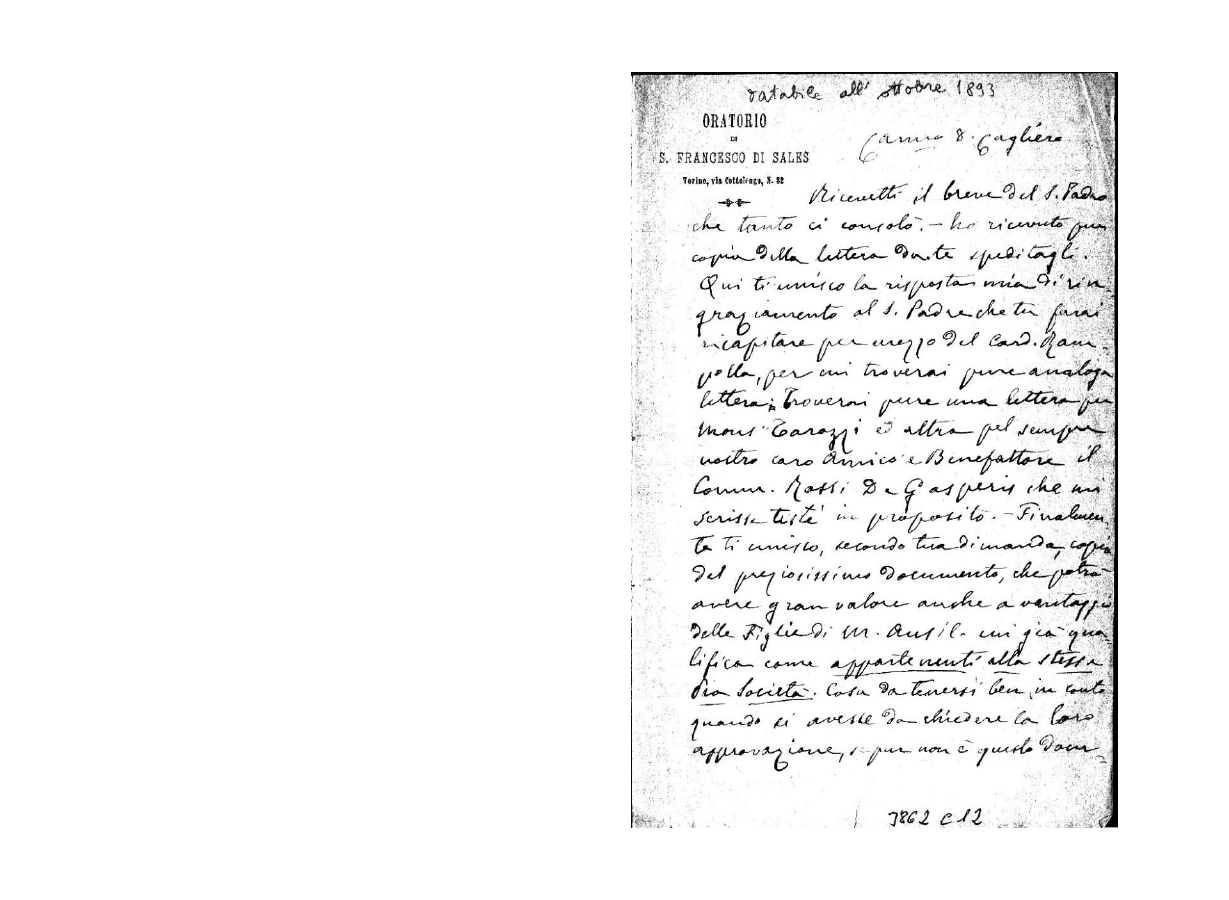 databile all' ottobre 1893
ORATORIO
DI
S. FRANCESCO DI SALES
Torino, via Cottolengo, N. 32
Car.mo D. Cagliero
Ricevetti il breve del S. Padre
che tanto ci consolò. – ho ricevuto pur
copia della lettera da te speditagli.
Qui ti unisco la risposta mia di rin-
graziamento al S. Padre che tu farai
ricapitare per mezzo del Card. Ram-
polla, per cui troverai pure analoga
lettera; Troverai pure una lettera per
Mons. ed altra pel sempre
nostro caro Amico e Benefattore il
Comm. Rossi De Gasperis che mi
scrisse testé in proposito. – Finalmen-
te ti unisco, secondo tua dimanda, copia
del preziosissimo documento, che potrà
avere gran valore anche a vantaggio
delle Figlie di M. Ausil. cui già qua-
lifica come appartenenti alla stessa
Pia Società. Cosa da tenersi ben in conto
quando si avesse da chiedere la loro
approvazione, se pur non è questo docu-
3862 C 12